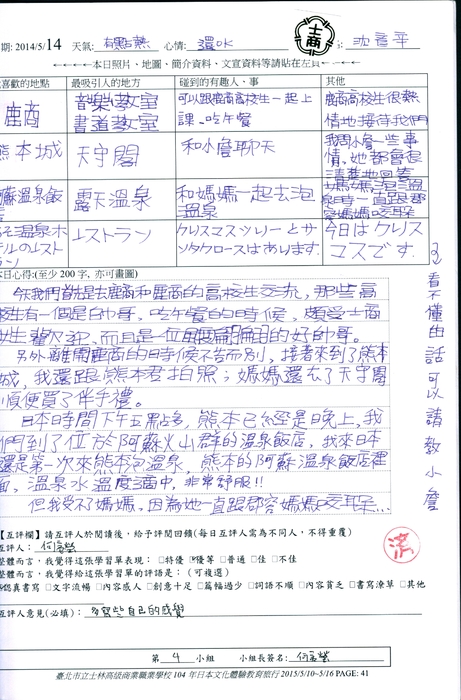 期: 2014/5/14 天氣: 有點熱 心情: 還OK 沈彥平
←←←←←本日照片、地圖、簡介資料、文宣資料等請貼在左頁←←
喜歡的地點 最吸引人的地方 碰到的有趣人、事 其他
鹿商 音樂教室 書道教室 可以跟鹿商高校生一起上課、吃午餐 鹿商高校生很熱情地接待我們
熊本城 天守閣 和小詹聊天 我問小詹一些事情,她都會很清楚地回答
蘇溫泉飯 露天溫泉 和媽媽一起去泡溫泉 媽媽泡溫泉時一直跟鄰容媽媽哈拉
溫泉ホテルのレストラン レストラン クリスマスツリーとサンタクロースはあります。 今日はクリスマスです。
看不懂的話可以請教小詹
本日心得:(至少 200 字, 亦可畫圖)
今天我們首先是去鹿商和鹿商的高校生交流,那些高
校生有一個是白帥哥,吃午餐的時候,頗受士商
女生歡迎,而且是一位
的好帥哥。
另外離開鹿商的時候不告而別,接著來到了熊本
城,我還跟熊本君拍照;媽媽還去了天守閣
順便買了伴手禮。
日本時間下午五點多,熊本已經是晚上,我
們到了位於阿蘇火山群的溫泉飯店,我來日本
還是第一次來熊本泡溫泉,熊本的阿蘇溫泉飯店裡
面,溫泉水溫度適中,非常舒服!!
但我受不了媽媽,因為她一直跟鄰容媽媽哈拉…
【互評欄】請互評人於閱讀後,給予評閱回饋(每日互評人需為不同人,不得重覆)
互評人:
整體而言,我覺得這張學習單表現:□特優 ☑優等 □普通 □佳 □不佳
整體而言,我覺得給這張學習單的評語是:(可複選)
認真書寫 □文字流暢 □內容感人 □創意十足 □篇幅過少 □詞語不順 □內容貧乏 □書寫潦草 □其他
互評人意見(必填): 多寫些自己的感覺
第 4 小組 小組長簽名:
臺北市立士林高級商業職業學校 104 年日本文化體驗教育旅行 2015/5/10~5/16 PAGE: 41